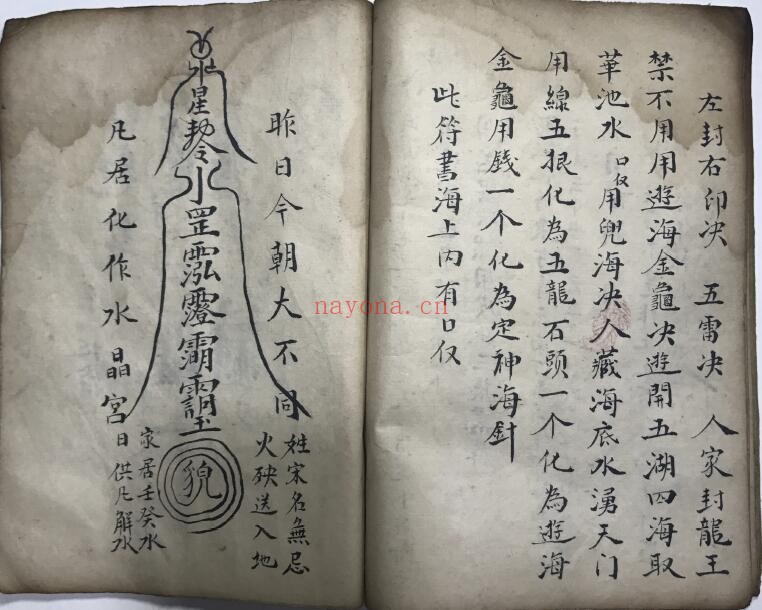 左封右印决 五雷决 人家封龍王
禁不用用遊海金龜决遊開五湖四海取
華池水口仅用兜海决人藏海底水湧天门
用線五根化為五龍石頭一个化為遊海
金龜用錢一个化為定神海針
此符書海上内有口仅
昨日今朝大不同
姓宋名無忌
火殃送入地
水星勅令水罡
貌
凡居化作水晶宮
家居壬癸水
日供凡解水
nayona.cn